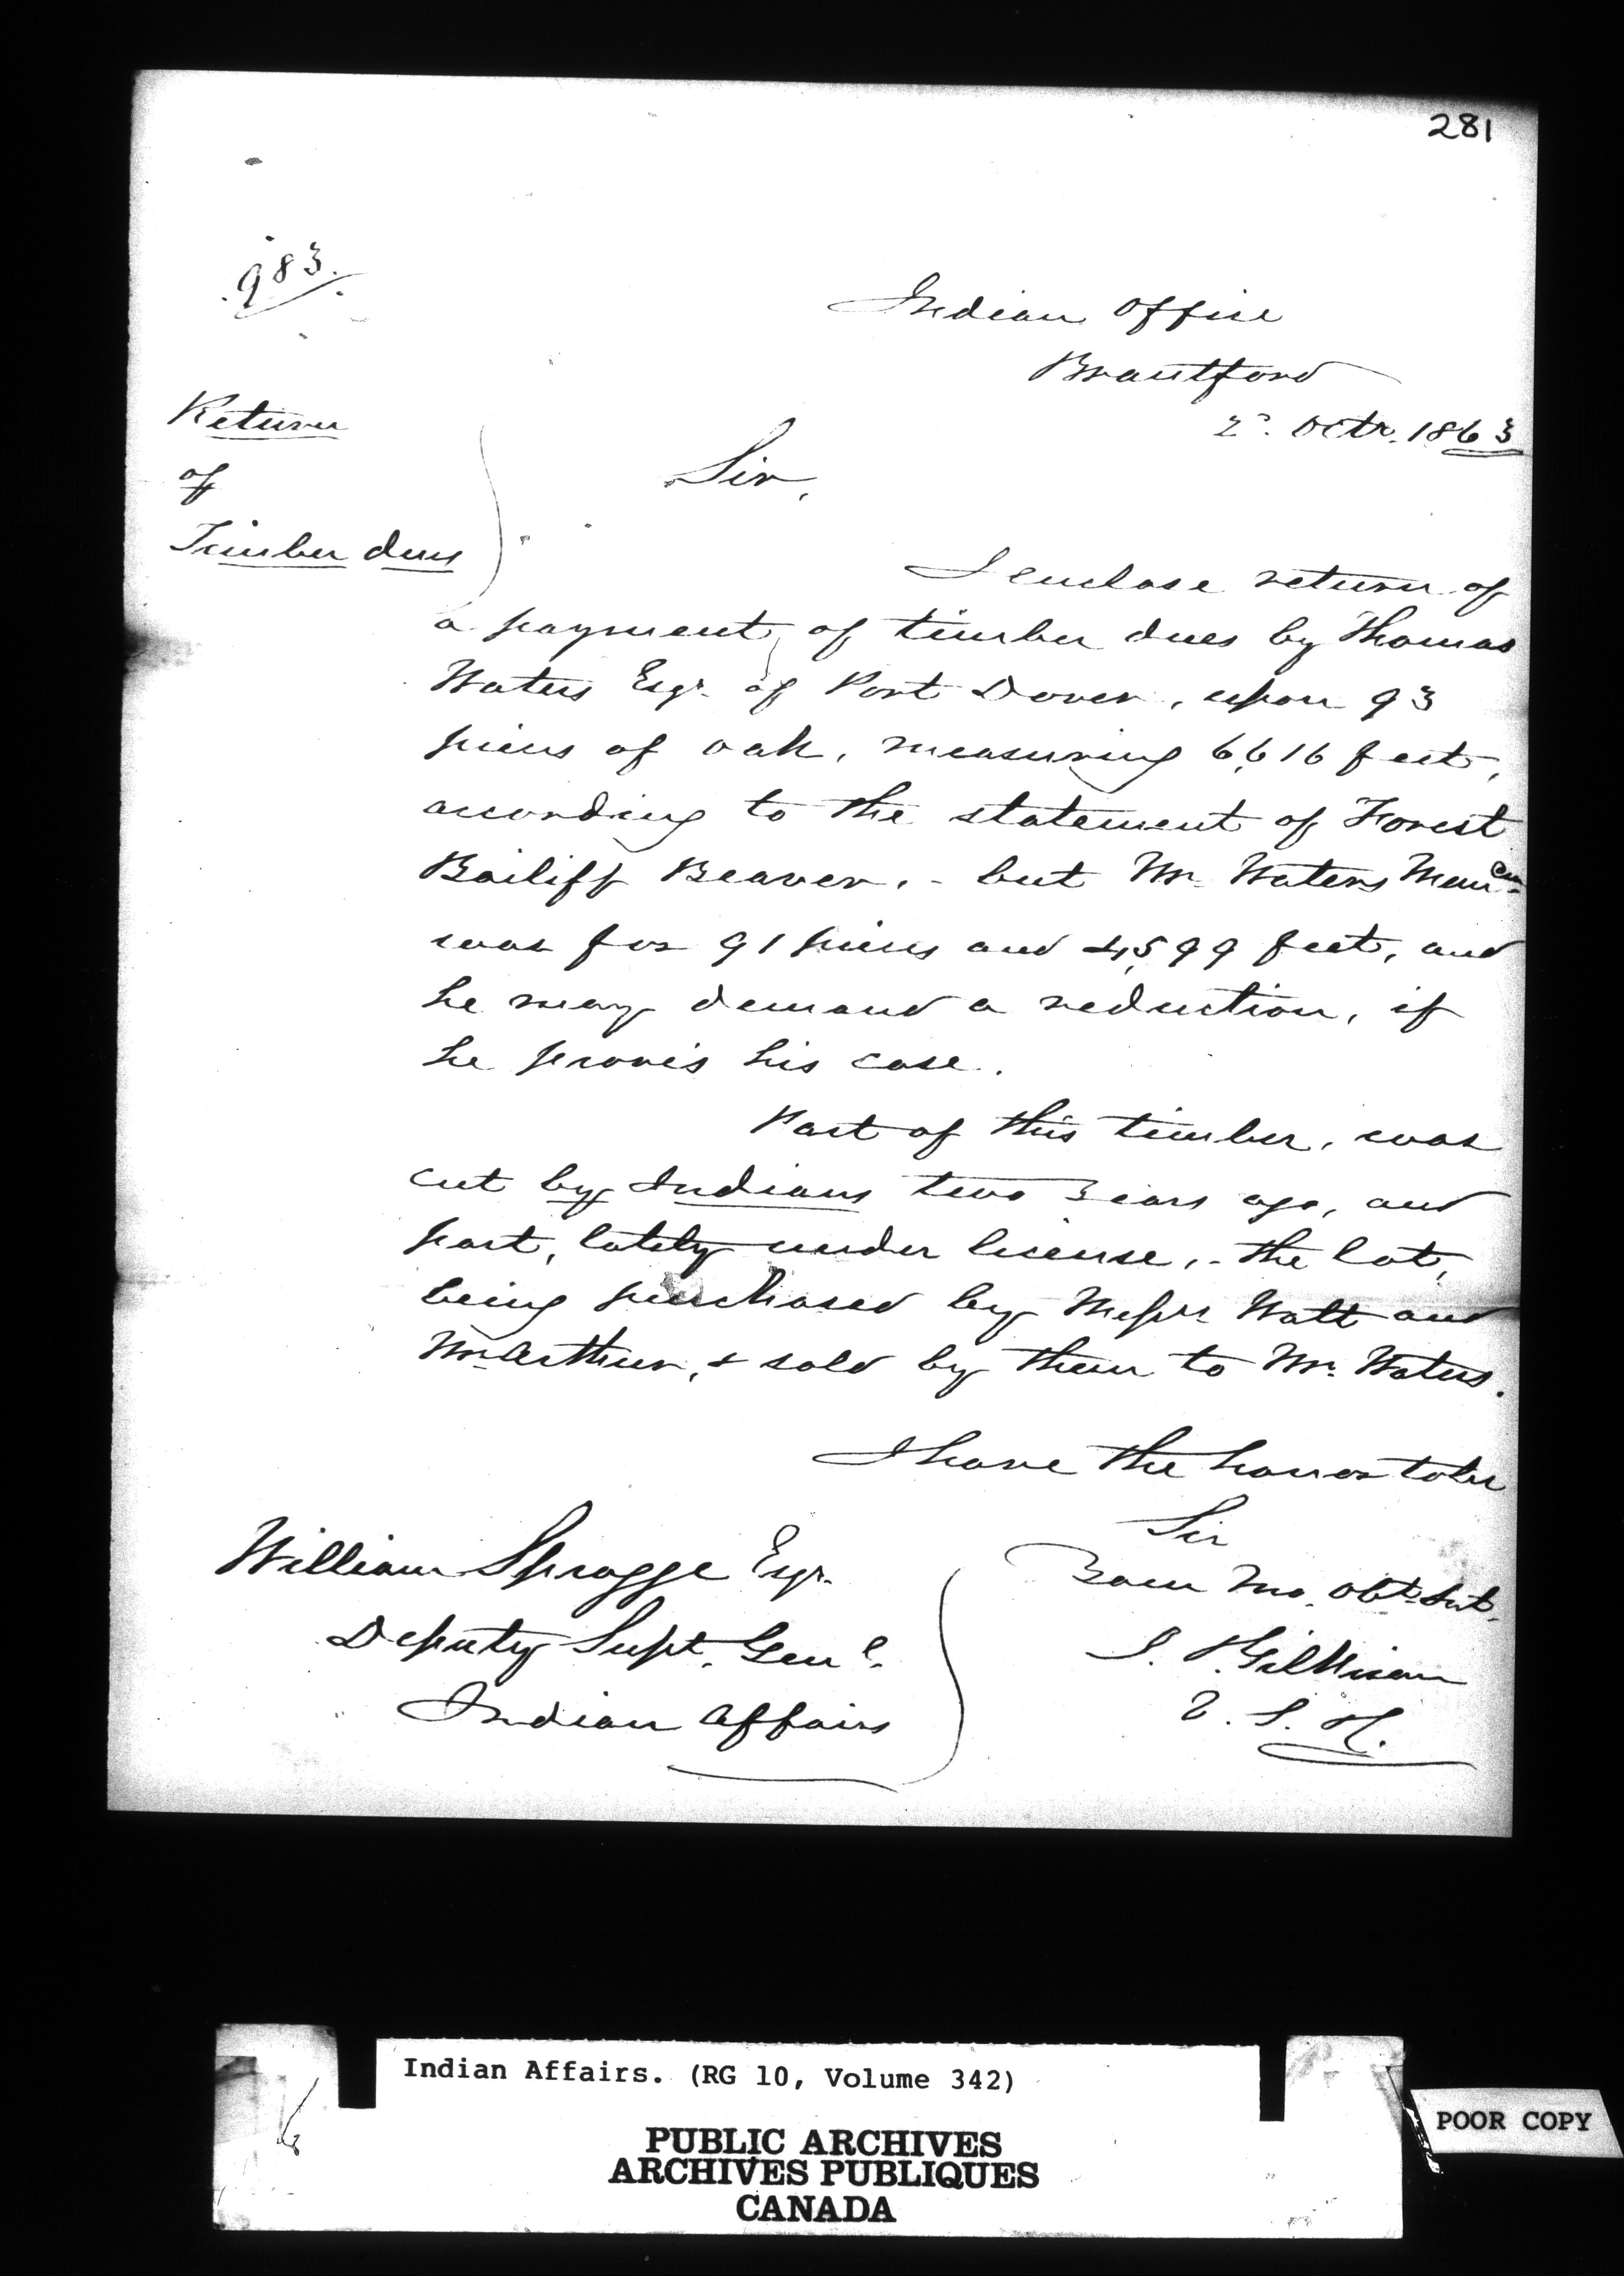 281
983.
Indian Office
Brantford
2d. Octr. 1863
Return
of
Timber dues
Sir,
I enclose return of
a payment, of timber dues by Thomas
Waters Esqr. of Port Dover, upon 93
pieces of oak, measuring 6,616 feet,
according to the statement of Forest
Bailiff Beaver, - but Mr. Waters
was for 91 pieces and 4,599 feet, and
he may demand a reduction, if
he proves his case.
Part of this timber, was
cut by Indians two years ago, and
part, lately under license, - the lot,
being purchased by Messrs Watt and
McArthur, & sold by them to Mr. Waters.
I have the honor to be
Sir
Your Mo. Obt. Svt.
J. T. Gilkison
V. S. &.
William Spragge Esqr.
Deputy Supt. Genl.
Indian Affairs
Indian Affairs. (RG 10, Volume 342)
PUBLIC ARCHIVES
ARCHIVES PUBLIQUES
CANADA
POOR COPY